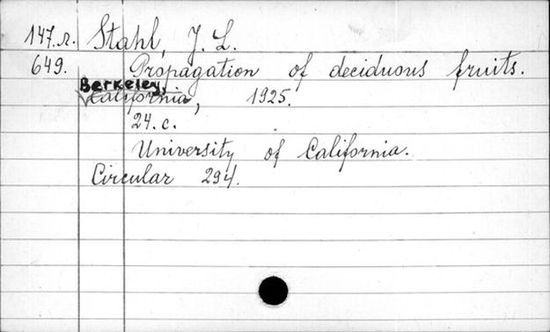 147.r. Stahl, J. L.
649. Propagation of deciduous fruits.
Berkeley,
California, 1925.
24.c.
University of California.
Circular 294.